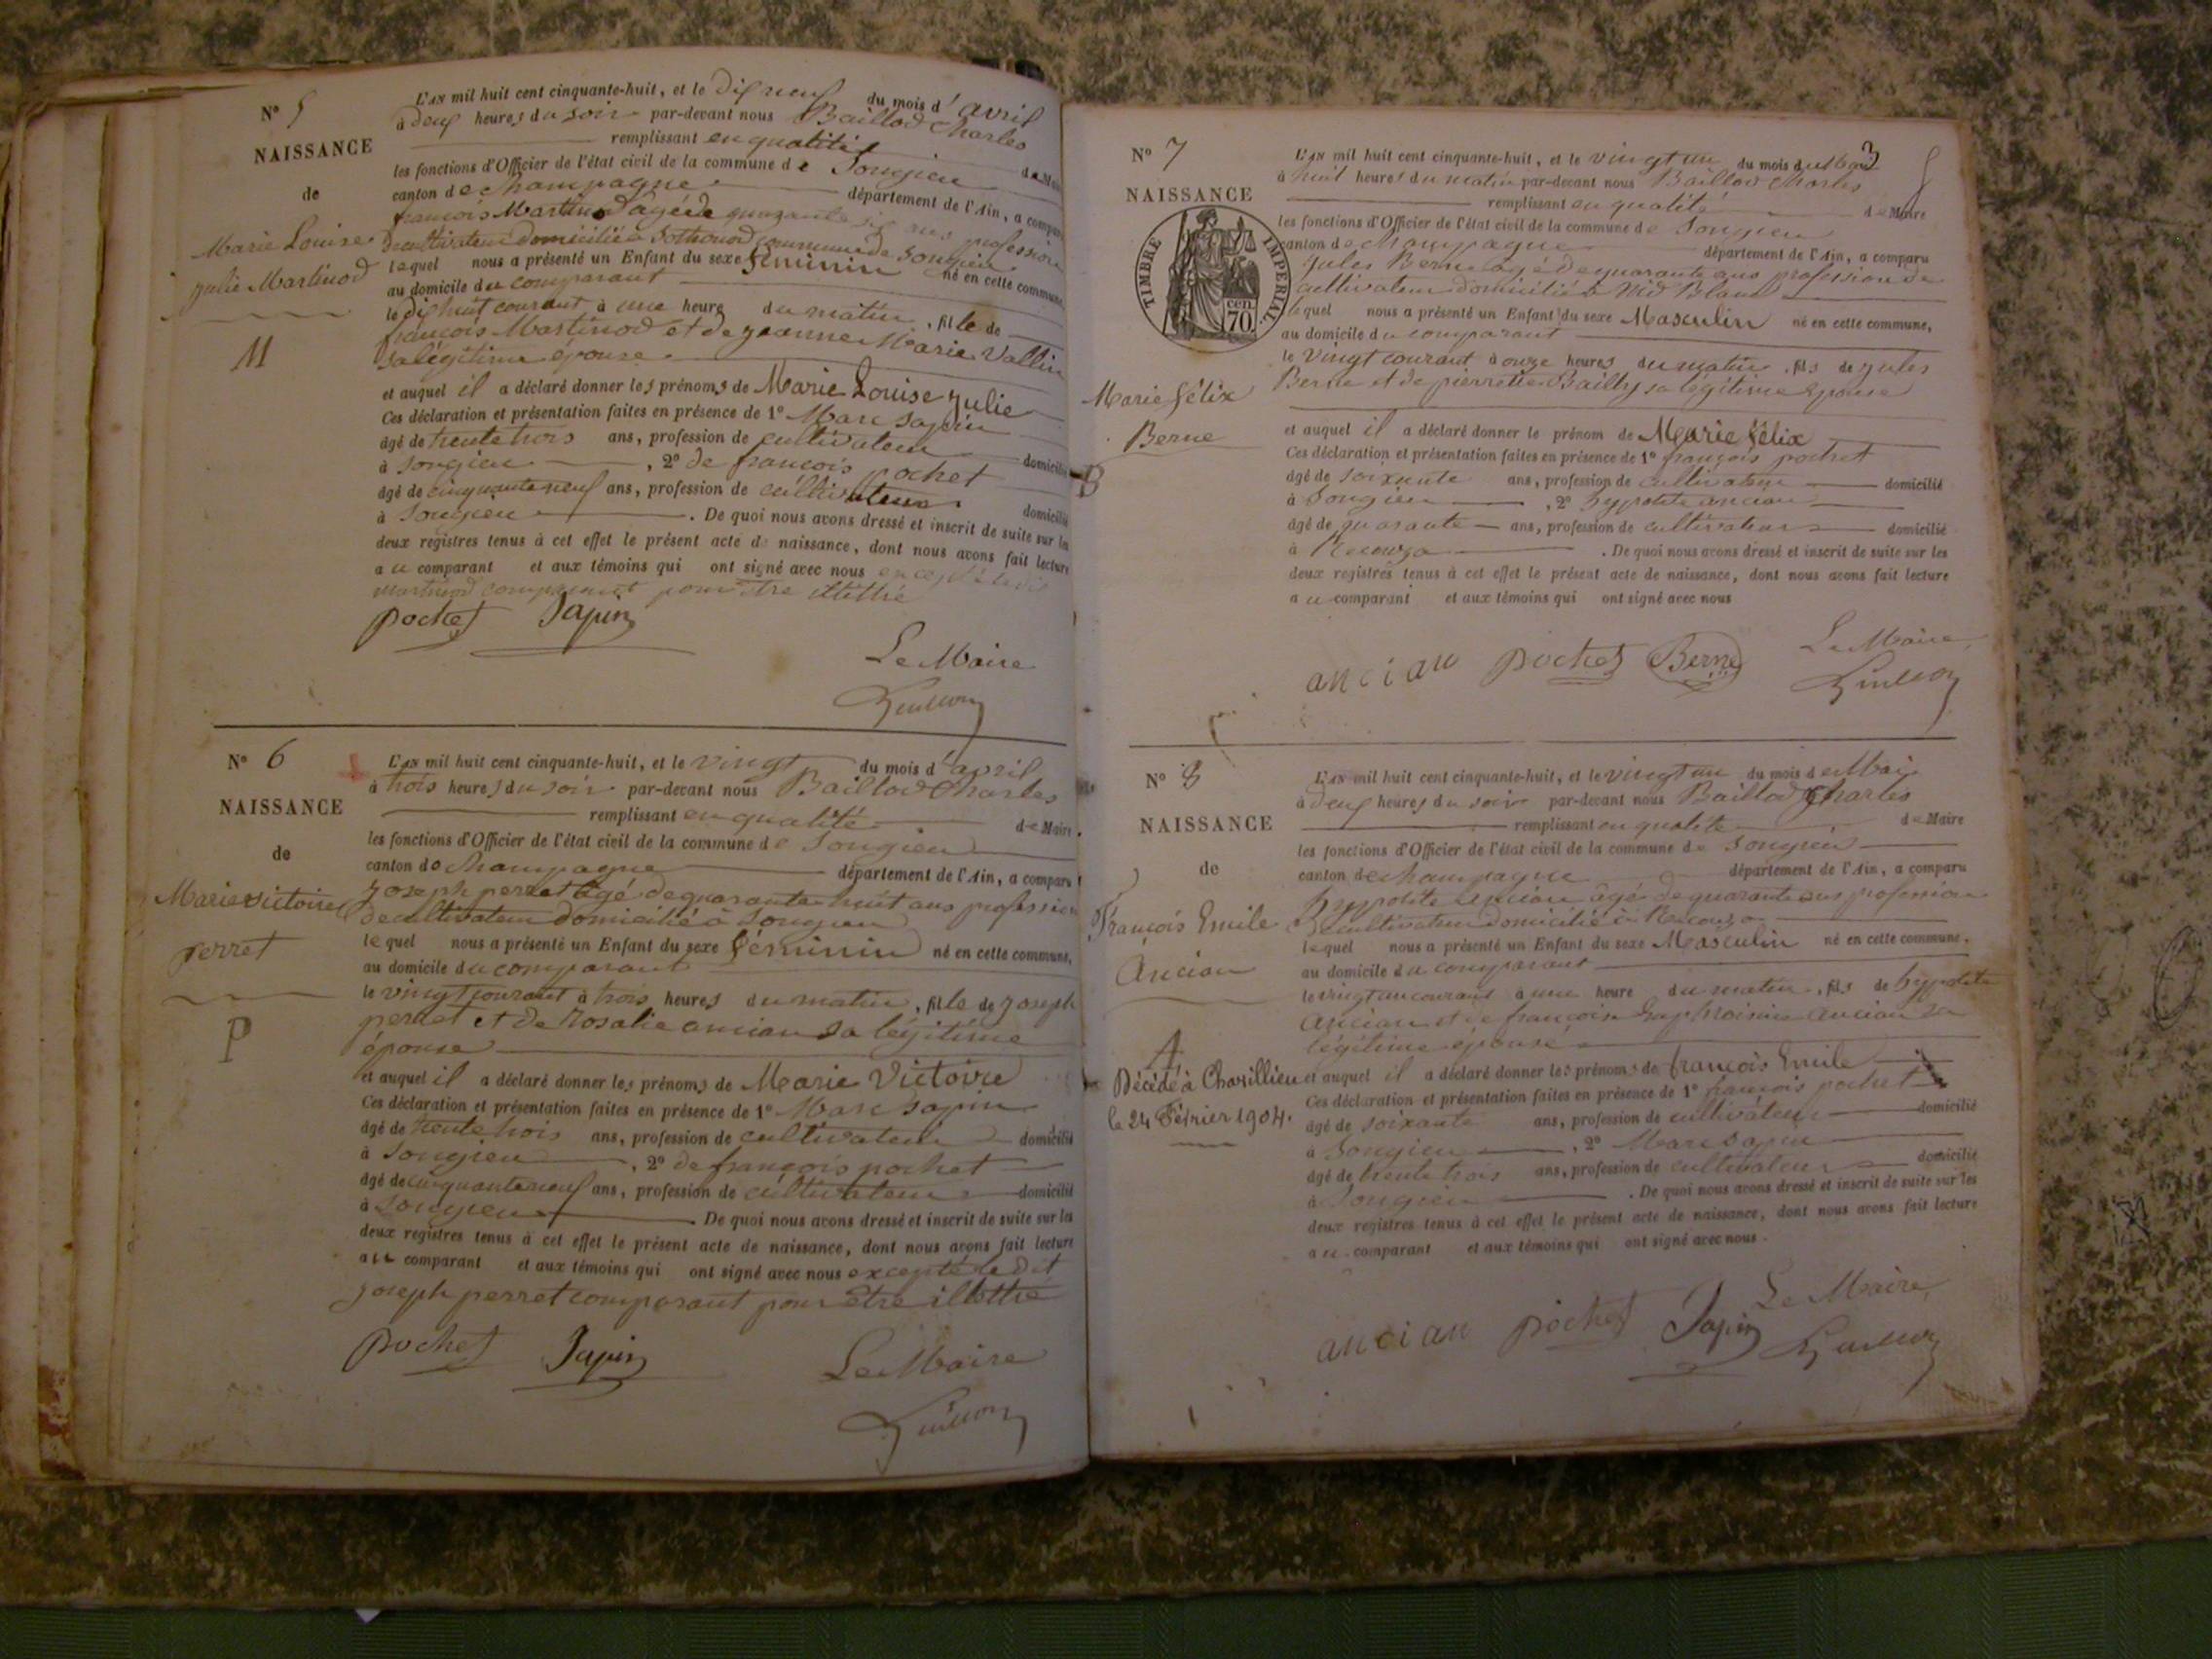 N° 5
NAISSANCE
de
Marie Louise
Julie Martinod
M
L'AN mil huit cent cinquante-huit, et le dix neuf du mois d'avril
à deux heures du soir par-devant nous Baillod Charles
remplissant en qualité de Maire
les fonctions d'Officier de l'état civil de la commune de Songieu
canton de Champagne département de l'Ain, a comparu
françois Martinod agé de quarante six ans profession
de cultivateur domicilié à Sothonod commune de Songieu
lequel nous a présenté un Enfant du sexe féminin né en cette commune,
au domicile du comparant
le dixhuit courant à une heure du matin, fille de
françois Martinod et de jeanne Marie Vallin
sa légitime épouse
et auquel il a déclaré donner les prénoms de Marie Louise Julie
Ces déclaration et présentation faites en présence de 1° Marc Sapin
âgé de trente trois ans, profession de cultivateur domicilié
à Songieu, 2° de françois pochet
âgé de cinquante neuf ans, profession de cultivateur domicilié
à Songieu. De quoi nous avons dressé et inscrit de suite sur les
deux registres tenus à cet effet le présent acte de naissance, dont nous avons fait lecture
au comparant et aux témoins qui ont signé avec nous excepté ledit
martinod comparant pour être illettré
pochet Sapin
Le Maire
N° 6
NAISSANCE
de
Marie victoire
perret
P
L'AN mil huit cent cinquante-huit, et le vingt du mois d'avril
à trois heures du soir par-devant nous Baillod Charles
remplissant en qualité de Maire
les fonctions d'Officier de l'état civil de la commune de Songieu
canton de Champagne département de l'Ain, a comparu
Joseph perret agé de quarante huit ans profession
de cultivateur domicilié à Songieu
lequel nous a présenté un Enfant du sexe féminin né en cette commune,
au domicile du comparant
le vingt courant à trois heures du matin, fille de Joseph
perret et de Rosalie ancian sa légitime
épouse
et auquel il a déclaré donner les prénoms de Marie Victoire
Ces déclaration et présentation faites en présence de 1° Marc Sapin
âgé de trente trois ans, profession de cultivateur domicilié
à Songieu, 2° de françois pochet
âgé de cinquante neuf ans, profession de cultivateur domicilié
à Songieu. De quoi nous avons dressé et inscrit de suite sur les
deux registres tenus à cet effet le présent acte de naissance, dont nous avons fait lecture
au comparant et aux témoins qui ont signé avec nous excepté ledit
joseph perret comparant pour être illettré
pochet Sapin
Le Maire
3
N° 7
NAISSANCE
TIMBRE IMPERIAL
cen
70
Marie félix
Berne
B
L'AN mil huit cent cinquante-huit, et le vingt un du mois du Mai
à huit heures du matin par-devant nous Baillod Charles
remplissant en qualité de Maire
les fonctions d'Officier de l'état civil de la commune de Songieu
canton de Champagne département de l'Ain, a comparu
Jules Berne agé de quarante ans profession de
cultivateur domicilié à Nid Blanc
lequel nous a présenté un Enfant du sexe Masculin né en cette commune,
au domicile du comparant
le vingt courant à onze heures du matin, fils de jules
Berne et de pierrette Bailly sa légitime épouse
et auquel il a déclaré donner le prénom de Marie félix
Ces déclaration et présentation faites en présence de 1° françois pochet
âgé de soixante ans, profession de cultivateur domicilié
à Songieu, 2° hyppolite ancian
âgé de quarante ans, profession de cultivateur domicilié
à. De quoi nous avons dressé et inscrit de suite sur les
deux registres tenus à cet effet le présent acte de naissance, dont nous avons fait lecture
au comparant et aux témoins qui ont signé avec nous
ancian pochet Berne
Le Maire
N° 8
NAISSANCE
de
François Emile
Ancian
A
Décédé à Chavillieu
le 24 Février 1904.
L'AN mil huit cent cinquante-huit, et le vingt un du mois de Mai
à deux heures du soir par-devant nous Baillod Charles
remplissant en qualité de Maire
les fonctions d'Officier de l'état civil de la commune de Songieu
canton de champagne département de l'Ain, a comparu
hyppolite Ancian agé de quarante ans profession
de cultivateur domicilié à
lequel nous a présenté un Enfant du sexe Masculin né en cette commune,
au domicile du comparant
le vingt un courant à une heure du matin, fils de hyppolite
Ancian et de françoise ancian sa
légitime épouse
et auquel il a déclaré donner les prénoms de françois Emile
Ces déclaration et présentation faites en présence de 1° françois pochet
âgé de soixante ans, profession de cultivateur domicilié
à Songieu, 2° Marc Sapin
âgé de trente trois ans, profession de cultivateur domicilié
à Songieu. De quoi nous avons dressé et inscrit de suite sur les
deux registres tenus à cet effet le présent acte de naissance, dont nous avons fait lecture
au comparant et aux témoins qui ont signé avec nous.
ancian pochet Sapin
Le Maire